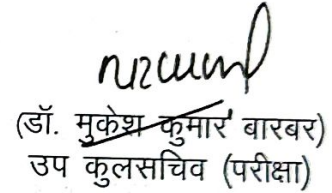 (डॉ. मुकेश कुमार बारबर)
उप कुलसचिव (परीक्षा)